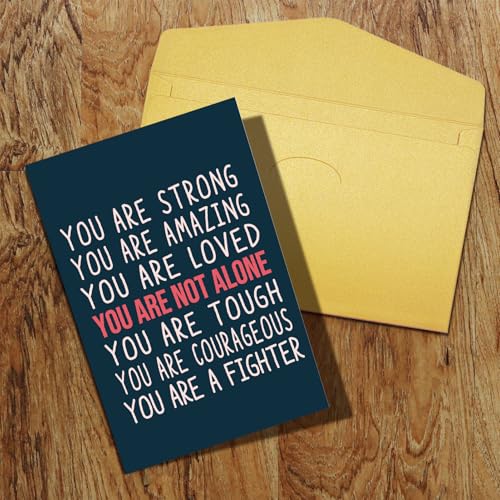 YOU ARE STRONG
YOU ARE AMAZING
YOU ARE LOVED
YOU ARE NOT ALONE
YOU ARE TOUGH
YOU ARE COURAGEOUS
YOU ARE A FIGHTER